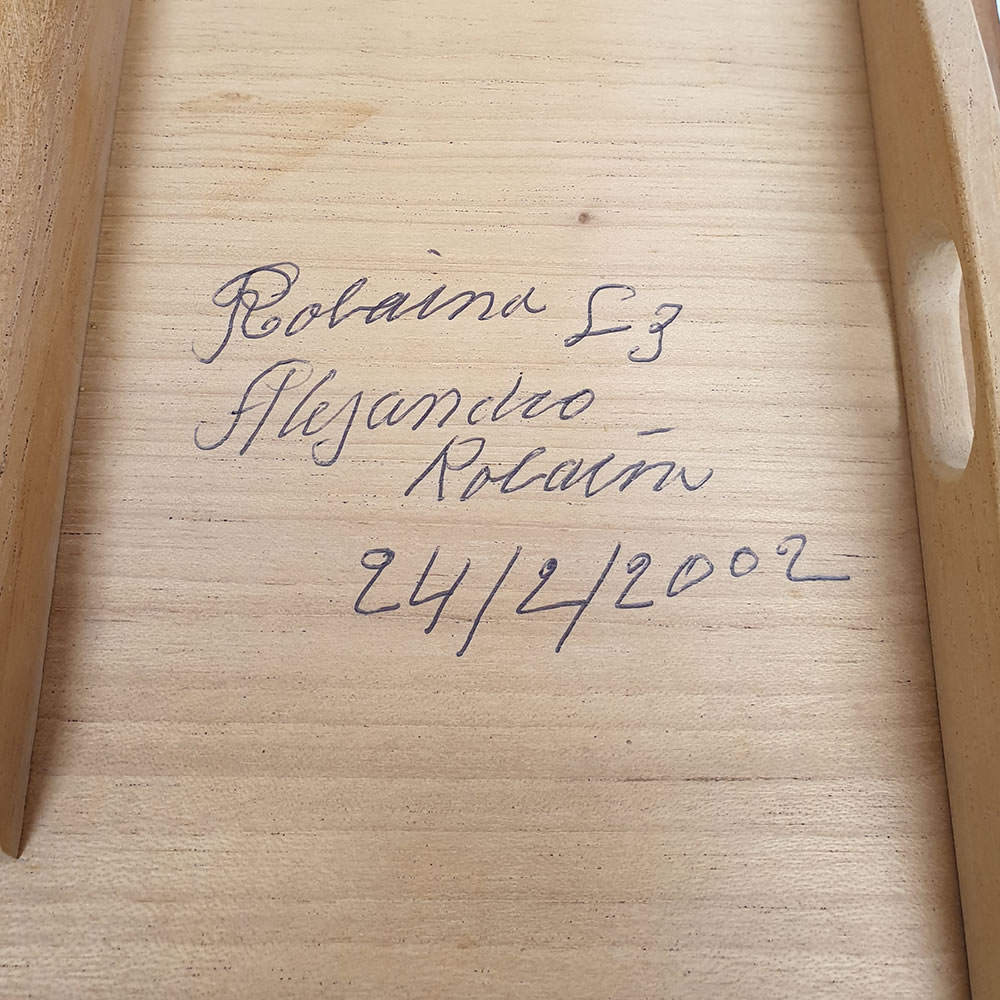 Robaina L3
Alejandro
Robaina
24/2/2002